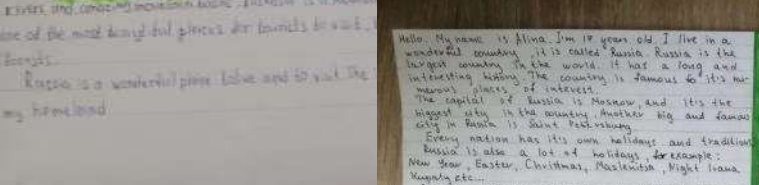 rivers and amazing mountain
one of the most beautiful places for tourists to visit,
Russia is a wonderful place to live and to visit The
my homeland
Hello. My name is Alina. I'm 17 years old. I live in a
wonderful country, it is called Russia. Russia is the
largest country in the world. It has a long and
interesting history. The country is famous to it's nu-
merous places of interest.
The capital of Russia is Moskow, and it's the
biggest city in the country. Another big and famous
city in Russia is Saint Petersburg
Every nation has it's own holidays and traditions
Russia is also a lot of holidays, for example:
New Year, Easter, Christmas, Maslenitsa, Night Ivana
Kupaly etc...